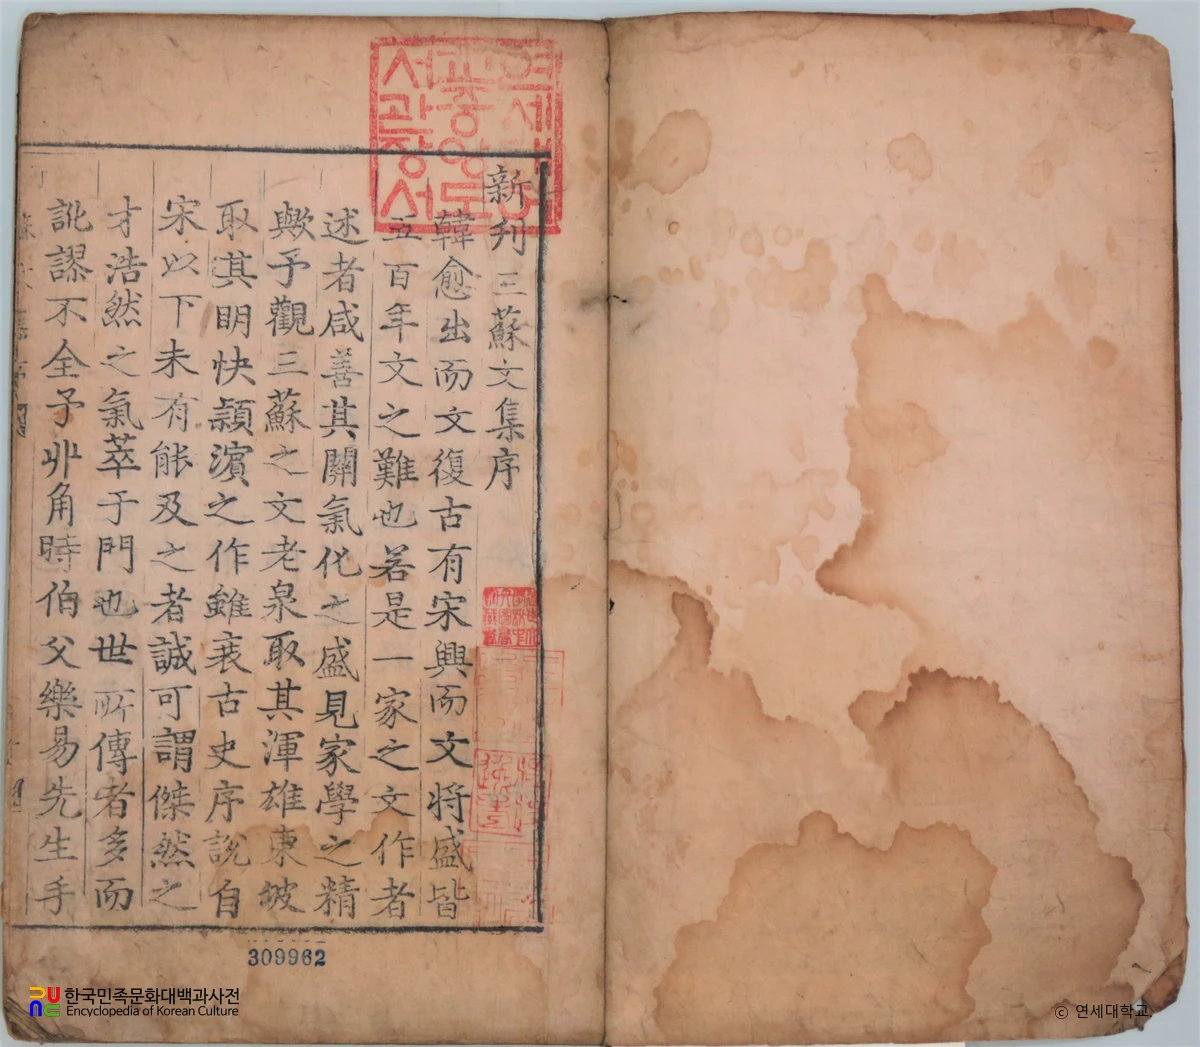 연세대학
교중앙도
서관장서
新刋三蘇文集序
韓愈出而文復古有宋興而文將盛皆
五百年文之難也若是一家之文作者
述者咸善其關氣化之盛見家學之精
歟予觀三蘇之文老泉取其渾雄東坡
取其明快潁濱之作雖裒古史序說自
宋以下未有能及之者誠可謂傑然之
才浩然之氣萃于門也世所傳者多而
訛謬不全予丱角時伯父樂易先生手
309962
한국민족문화대백과사전
Encyclopedia of Korean Culture
ⓒ 연세대학교